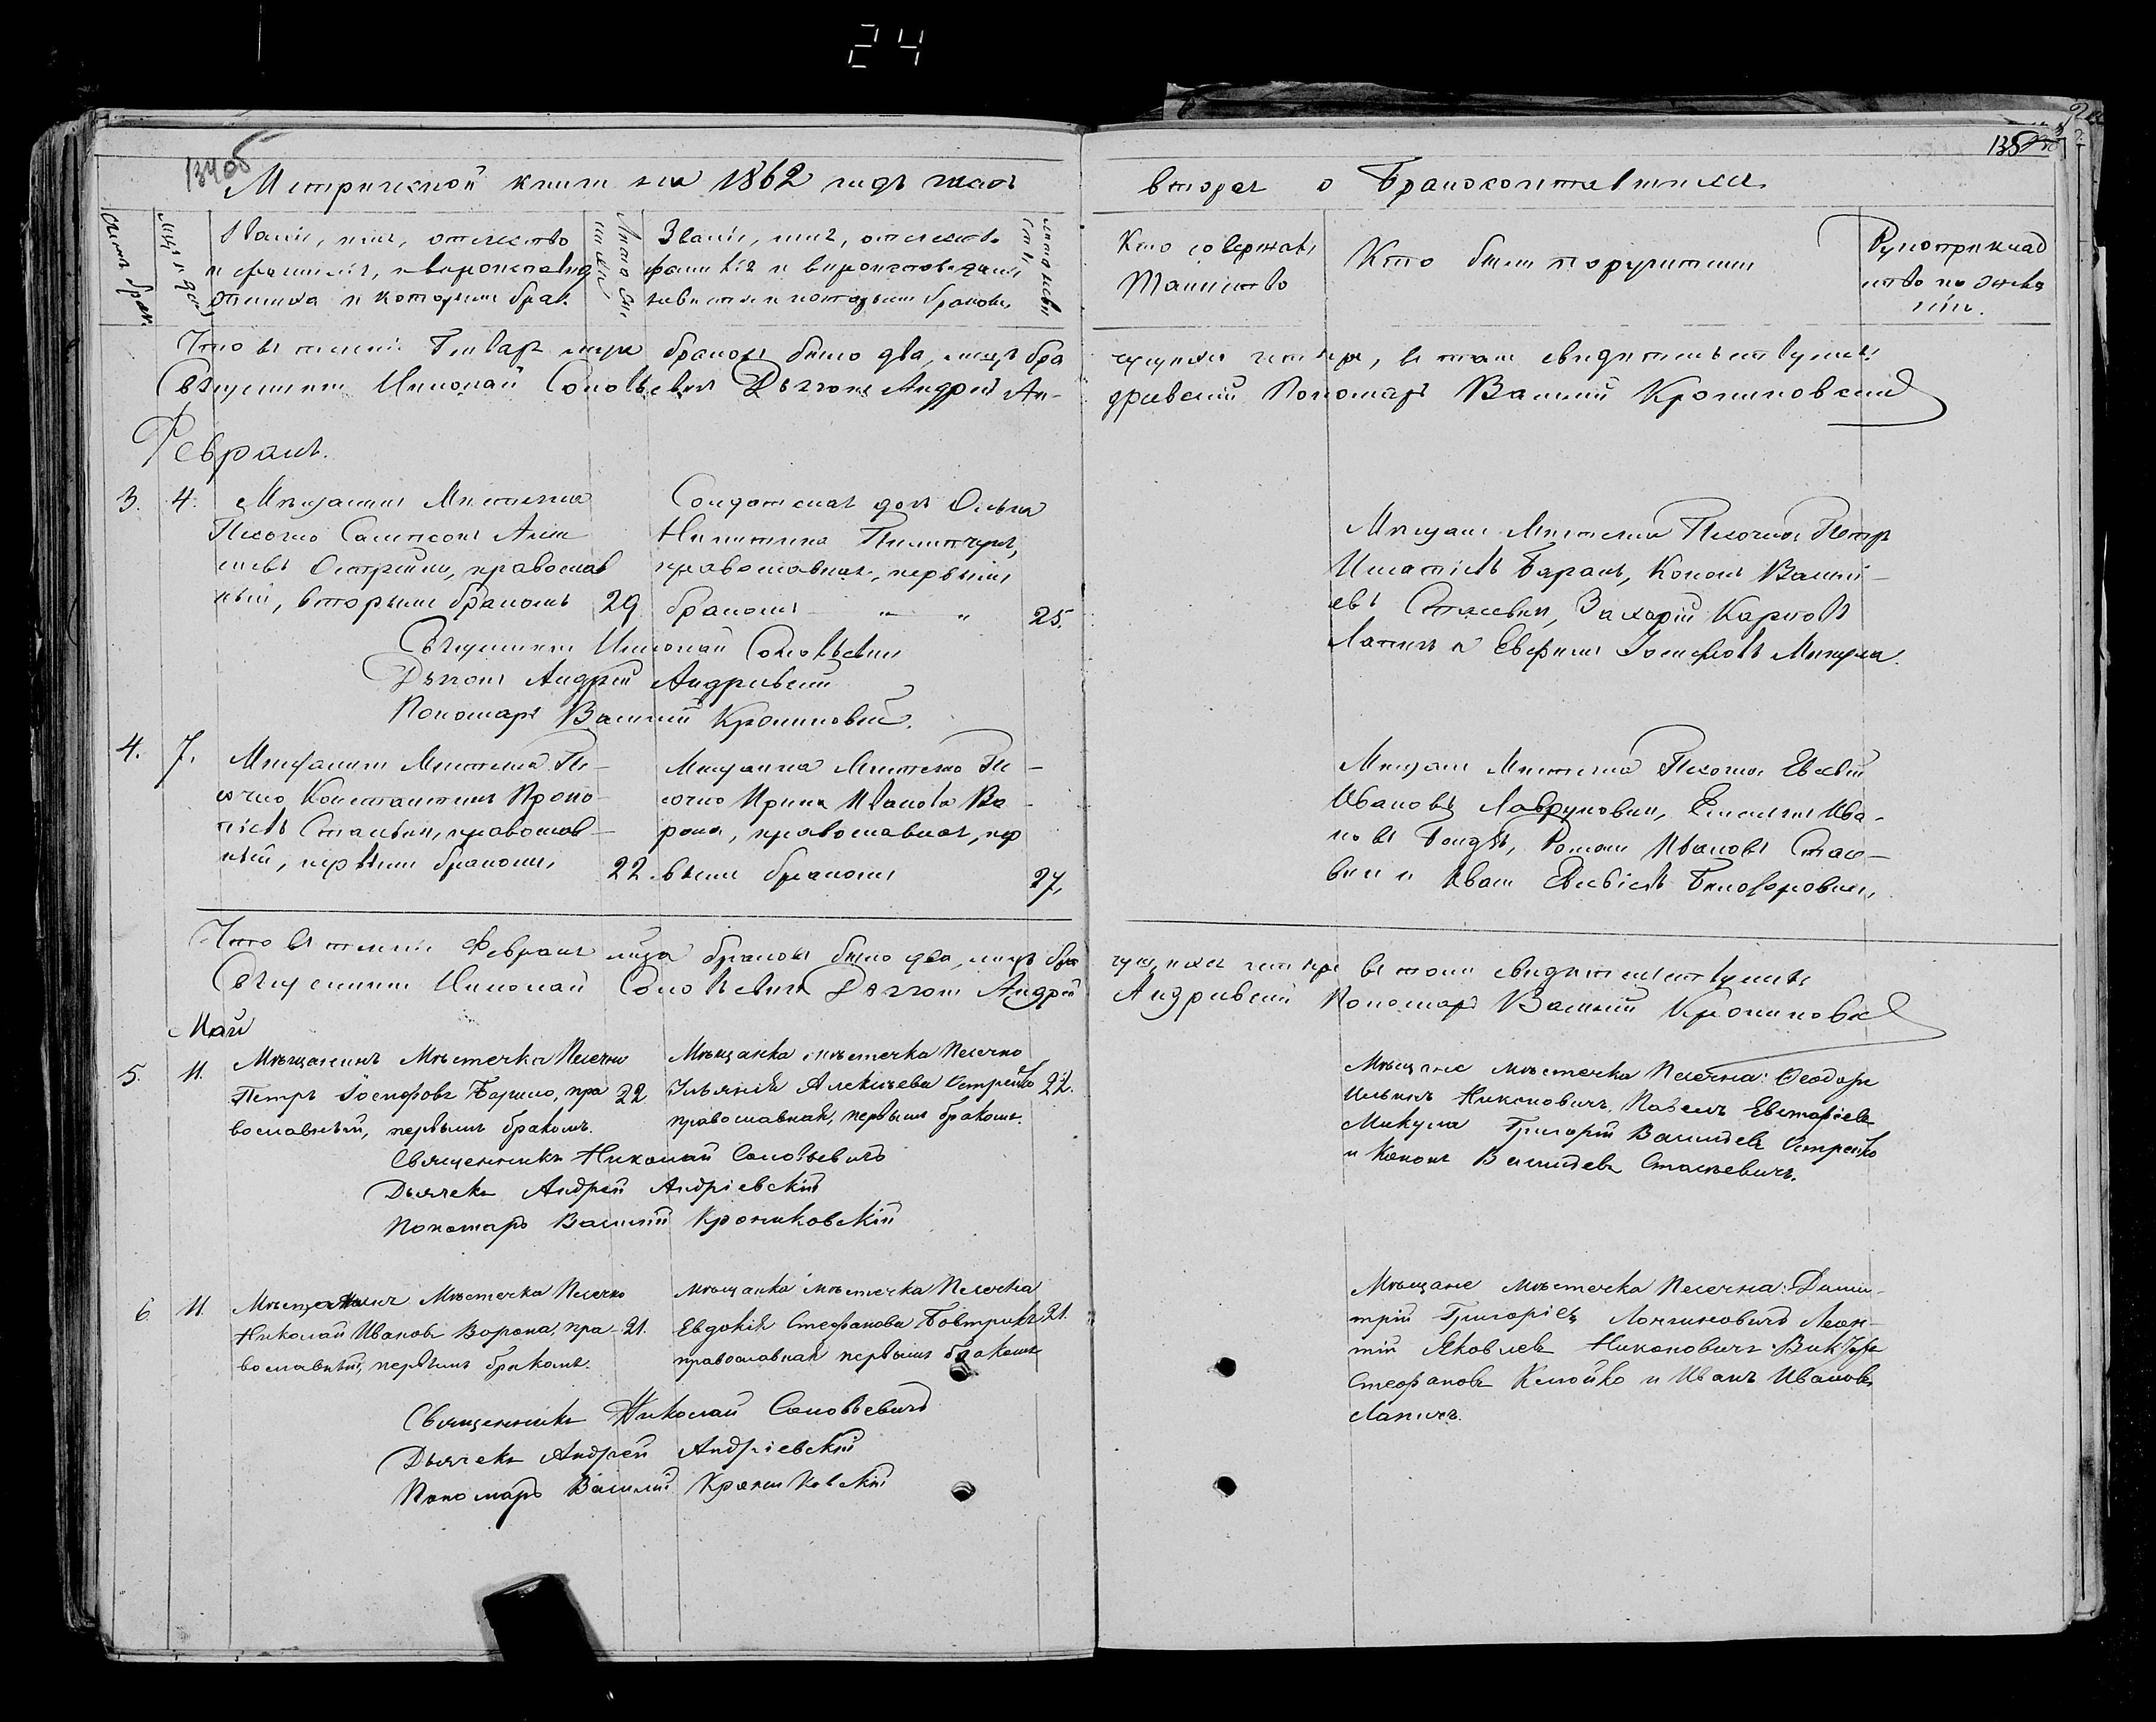 24
134об
Метрической книги на 1862 годъ часть
вторая о бракосочетавшихся
135
Счетъ брак.
Мѣс. и день
Званіе, имя, отечество
и фамилія, и вероисповѣд
жениха и которымъ брак.
Лѣта же-
ниха
Званіе, имя, отечество
фамилія и вѣроисповѣданіе
невѣсты и которымъ бракомъ
Лѣта невѣ
Кто совершалъ
Таинство
Кто были поручители
Рукоприклад
ство по жела
нію.
Что въ теченіе Генваря мца браковъ было два, лицъ бра
чущихся четыре, въ томъ свидетельствуемъ
Священникъ Николай Соловьевичъ Дьячокъ Андрей Ан-
дріевский Пономарь Василий Крониковский
Февраль.
3. 4. Мѣщанинъ Мѣстечка
Песочно Сампсонъ Алек
сѣевъ Острейко, православ
ный, вторымъ бракомъ 29
Солдатская дочь
Никитина
православная, первымъ
бракомъ " " 25.
Священникъ Николай Соловьевичъ
Дьячокъ Андрей Андріевский
Пономарь Василий Крониковский.
Мѣщане Мѣстечка Песочно: Петръ
Игнатіевъ Баранъ, Кононъ Василі-
евъ Стасевич, Захарій Карповъ
Лапичъ и Евфимъ Іосифовъ Микула.
4. 7. Мѣщанинъ Мѣстечка Пе-
сочно Константинъ Проко-
піевъ Стасевич, православ-
ный, первымъ бракомъ 22
Мѣщанка Мѣстечко Пе-
сочно Ирина Иванова Во-
рона, православная, пер
вымъ бракомъ 27.
Мѣщане Мѣстечка Песочно Евсевій
Ивановъ Лаврукович, Ива-
новъ Романъ Ивановъ Стасе-
вич и Иванъ Евсевіевъ
Что въ теченіе Февраля мца браковъ было два, лицъ бра
чущихся четыре въ томъ свидетельствуемъ
Священникъ Николай Соловьевичъ Дьячокъ Андрей
Андріевский Пономарь Василий Крониковский
Май
5. 11. Мѣщанинъ Мѣстечка Песочно
Петръ Іосифовъ пра 22
вославный, первымъ бракомъ.
Мѣщанка мѣстечка Песочно
Ульянія Алексѣева Острейко 22.
православная, первымъ бракомъ.
Священникъ Николай Соловьевичъ
Дьячекъ Андрей Андріевскій
Пономарь Василій Крониковскій
Мѣщане мѣстечка Песочна: Ѳеодоръ
Ильинъ Никоновичъ, Павелъ Евстафіевъ
Микула Григорій Василіевъ Острейко
и Кононъ Василіевъ Стасевичъ.
6 11. Мѣщанинъ Мѣстечка Песочно
Николай Ивановъ Ворона, пра- 21.
вославный, первымъ бракомъ.
Мѣщанка мѣстечка Песочна
Евдокія Стефанова Бовтрикъ 21.
православная первымъ бракомъ
Священникъ Николай Соловьевичъ
Дьячекъ Андрей Андріевскій
Пономарь Василій Крониковскій
Мѣщане мѣстечка Песочна: Дими-
трій Григоріевъ Лонгиновичъ Леон-
тій Яковлевъ Никоновичъ Викторъ
Стефановъ и Иванъ Ивановъ
Лапичъ.